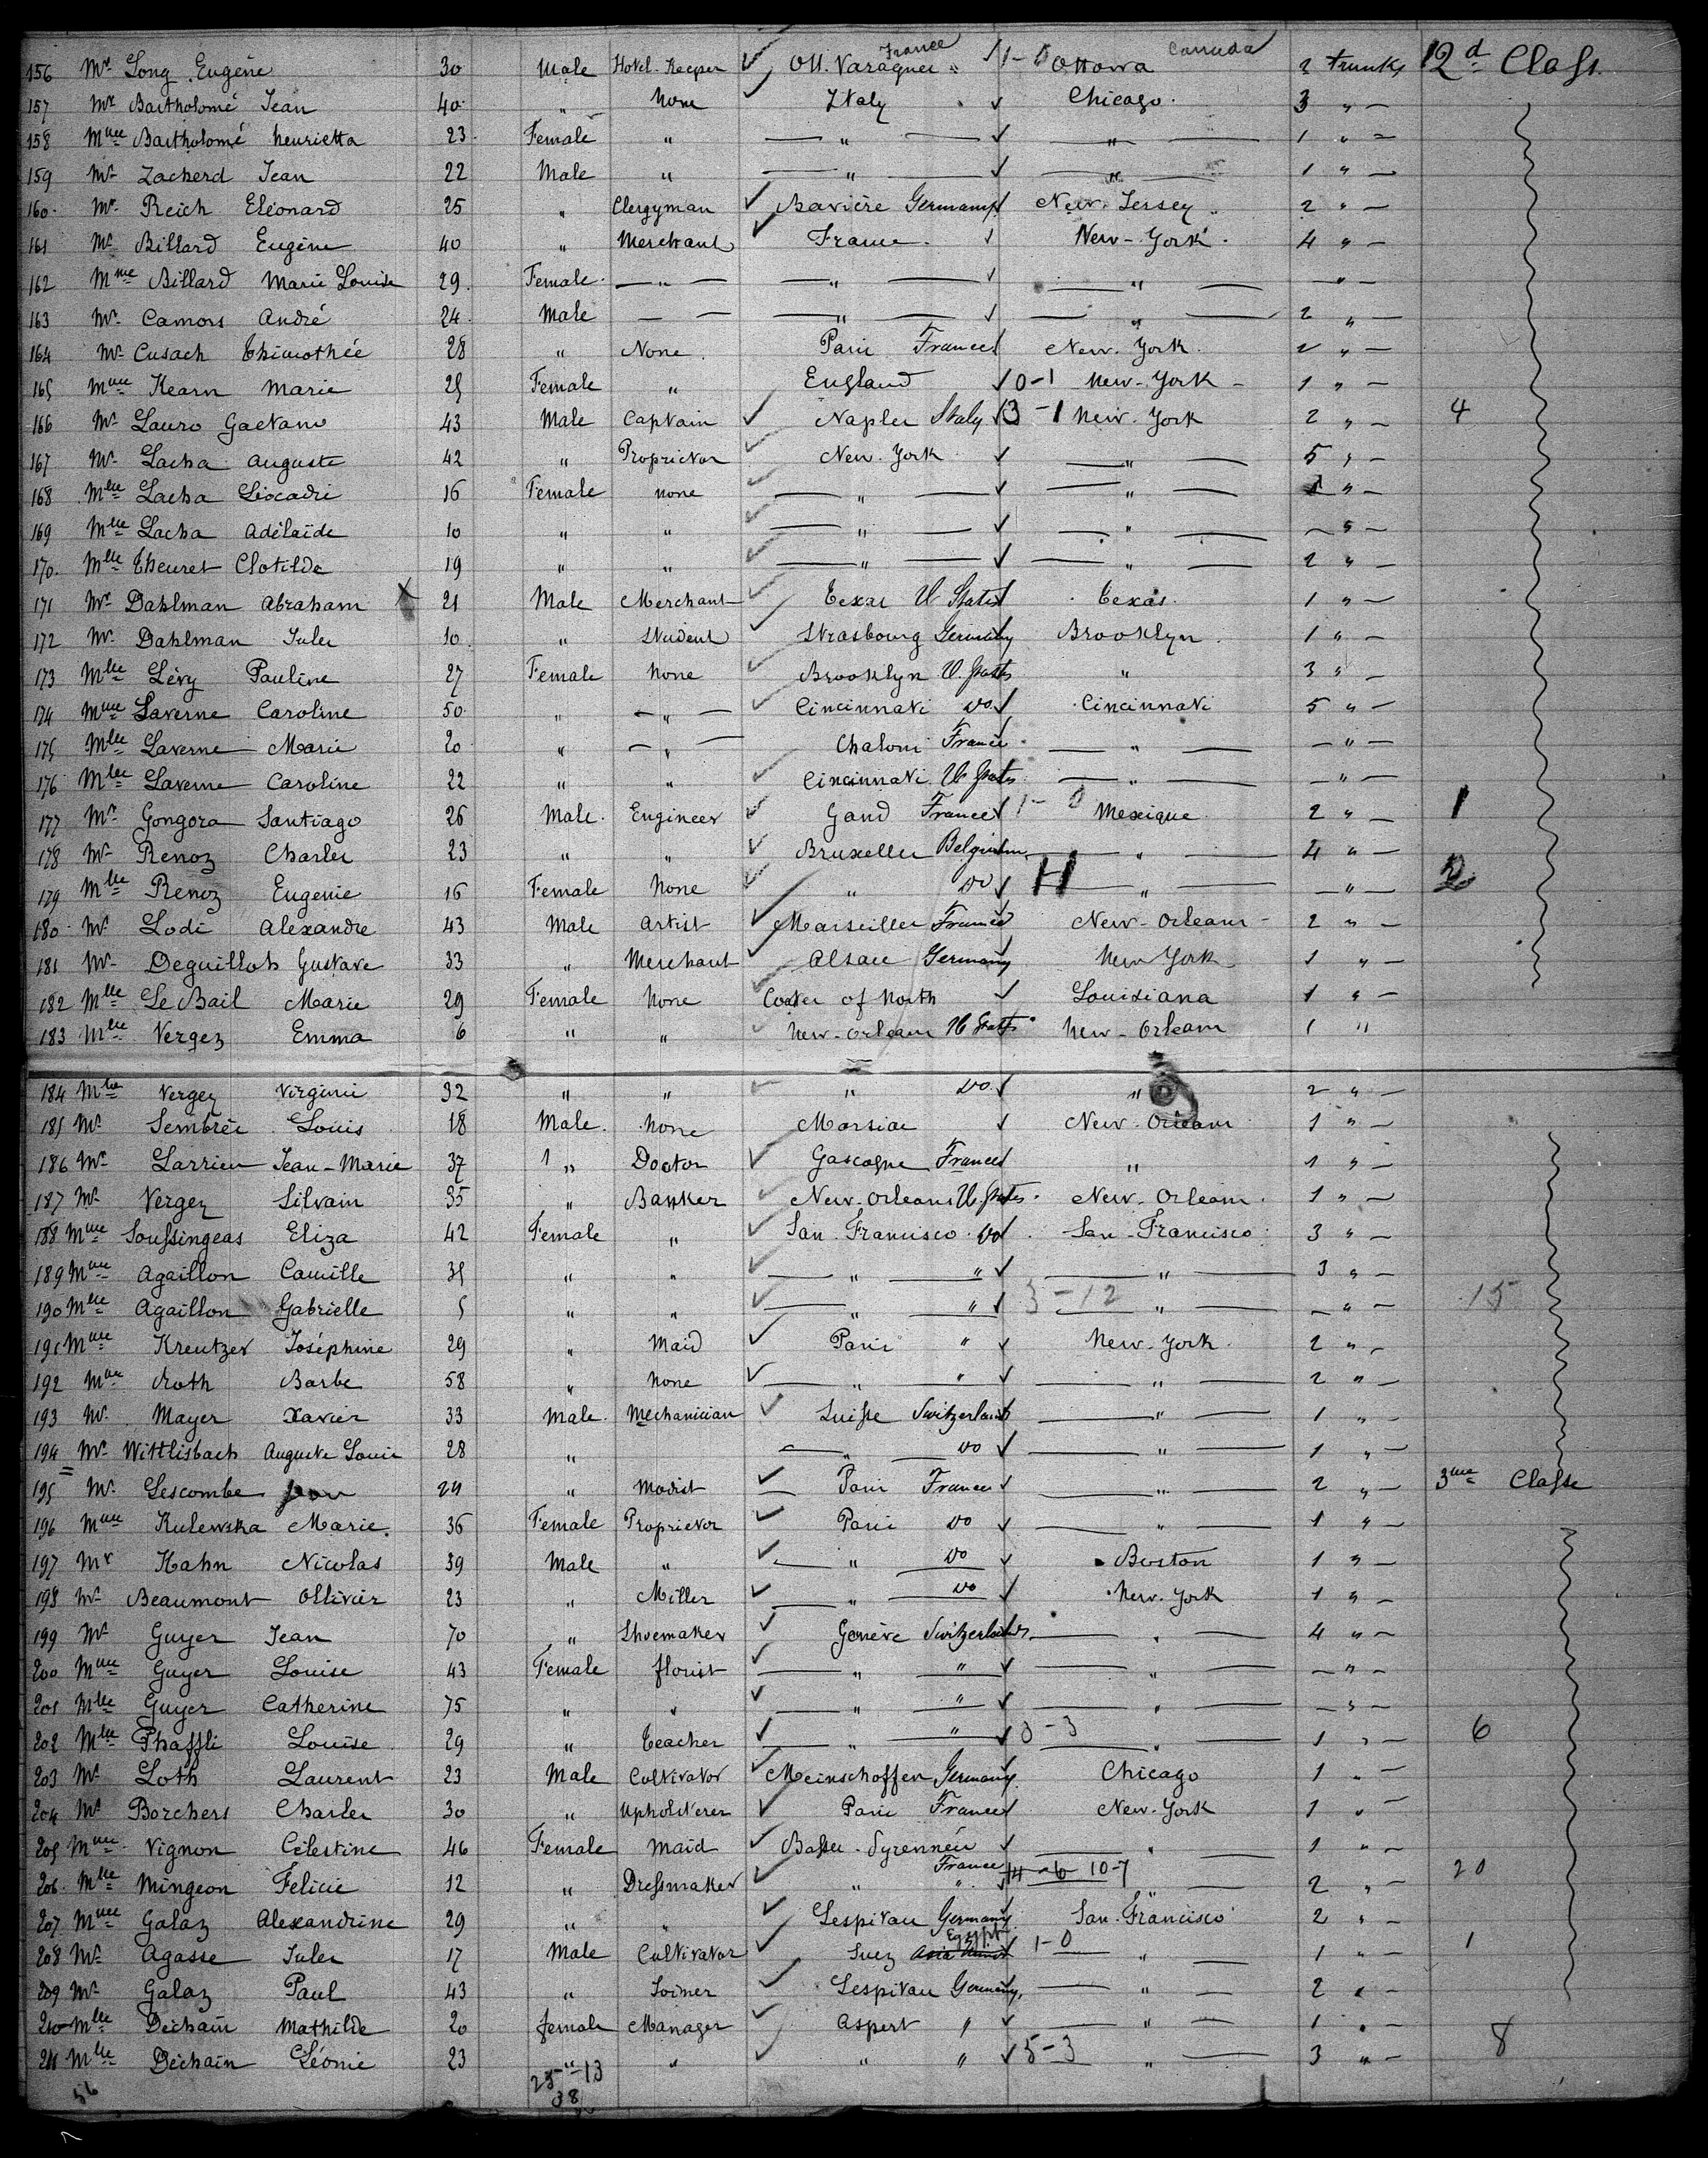 156 Mr Long Eugène 30 Male Hotel Keeper Ott. Varaques France 1-0 Ottowa Canada 2 trunks 2d Class.
157 Mr Bartholomé Jean 40 " None Italy Chicago 3 "
158 Mme Bartholomé henrietta 23 Female " " " 1 "
159 Mr Zacherd Jean 22 Male " " " 1 "
160 Mr Reich Eléonard 25 " Clergyman Bavière Germany New Jersey 2 "
161 Mr Billard Eugène 40 " Merchant France New-York 4 "
162 Mme Billard Marie Louise 29 Female " " " "
163 Mr Camors André 24 Male " " 2 "
164 Mr Cusach Thimothée 28 " None Paris France New-York 2 "
165 Mme Kearn Marie 25 Female " England 0-1 New-York 1 "
166 Mr Lauro Gaetano 43 Male Captain Naples Italy 3-1 New-York 2 " 4
167 Mr Lacha Auguste 42 " Proprietor New-York " 5 "
168 Mlle Lacha Léocadie 16 Female none " " 1 "
169 Mlle Lacha Adélaïde 10 " " " " "
170 Mlle Theuret Clotilde 19 " " " " 2 "
171 Mr Dahlman Abraham X 21 Male Merchant Texas U States Texas 1 "
172 Mr Dahlman Jules 10 " Student Strasbourg Germany Brooklyn 1 "
173 Mlle Lévy Pauline 27 Female None Brooklyn U. States " 3 "
174 Mme Laverne Caroline 50 " " Cincinnati do Cincinnati 5 "
175 Mlle Laverne Marie 20 " " Chalons France " "
176 Mlle Laverne Caroline 22 " " Cincinnati U States " "
177 Mr Gongora Santiago 26 Male Engineer Gand France 1-0 Mexique 2 " 1
178 Mr Renoz Charles 23 " " Bruxelles Belgium " 4 "
179 Mlle Renoz Eugenie 16 Female None " do H " " 2
180 Mr Lodi Alexandre 43 Male Artist Marseilles France New-Orleans 2 "
181 Mr Deguilloh Gustave 33 " Merchant Alsace Germany New York 1 "
182 Mlle Le Bail Marie 29 Female None of North Louisiana 1 "
183 Mlle Vergez Emma 6 " " New-Orleans U States New-Orleans 1 "
184 Mlle Vergez Virginie 32 " " " do " 2 "
185 Mr Sembrée Louis 18 Male None New-Orleans 1 "
186 Mr Larrieu Jean-Marie 37 " Doctor Gascogne France " 1 "
187 Mr Vergez Silvain 35 " Banker New-Orleans U. States New-Orleans 1 "
188 Mme Soussingeas Eliza 42 Female " San Francisco do San-Francisco 3 "
189 Mme Agaillon Camille 35 " " " " " 3 "
190 Mlle Agaillon Gabrielle 5 " " " " 3-12 " " 15
191 Mme Kreutzer Joséphine 29 " Maid Paris " New-York 2 "
192 Mme Roth Barbe 58 " None " " " 2 "
193 Mr Mayer Xavier 33 Male Mechanician Suisse Switzerland " 1 "
194 Mr Wittlisbach Auguste Louis 28 " " do " 1 "
195 Mr Lescombe 24 " Modist Paris France " 2 " 3me Classe
196 Mme Kulewska Marie 36 Female Proprietor Paris do " 1 "
197 Mr Hahn Nicolas 39 Male " " do Boston 1 "
198 Mr Beaumont Ollivier 23 " Miller " do New-York 1 "
199 Mr Guyer Jean 70 " Shoemaker Genève Switzerland " 4 "
200 Mme Guyer Louise 43 Female florist " " " "
201 Mlle Guyer Catherine 75 " " " " " "
202 Mlle Phaffli Louise 29 " Teacher " " 0-3 " 1 " 6
203 Mr Loth Laurent 23 Male Cultivator Meinschoffen Germany Chicago 1 "
204 Mr Borchers Charles 30 " Upholsterer Paris France New-York 1 "
205 Mme Vignon Célestine 46 Female Maid Basses-Pyrennées " 1 "
206 Mlle Mingeon Félicie 12 " Dressmaker " France 14-6 10-7 " 2 " 20
207 Mme Galaz Alexandrine 29 " " Lespitau Germany San-Francisco 2 "
208 Mr Agasse Jules 17 Male Cultivator Suez Asia Minor Egypt 1-0 " 1 " 1
209 Mr Galaz Paul 43 " Joiner Lespitau Germany " 2 "
210 Mlle Dechain Mathilde 20 female Manager Aspert " " 1 "
211 Mlle Déchain Léonie 23 " " " " 5-3 " 3 " 8
56 25-13
38